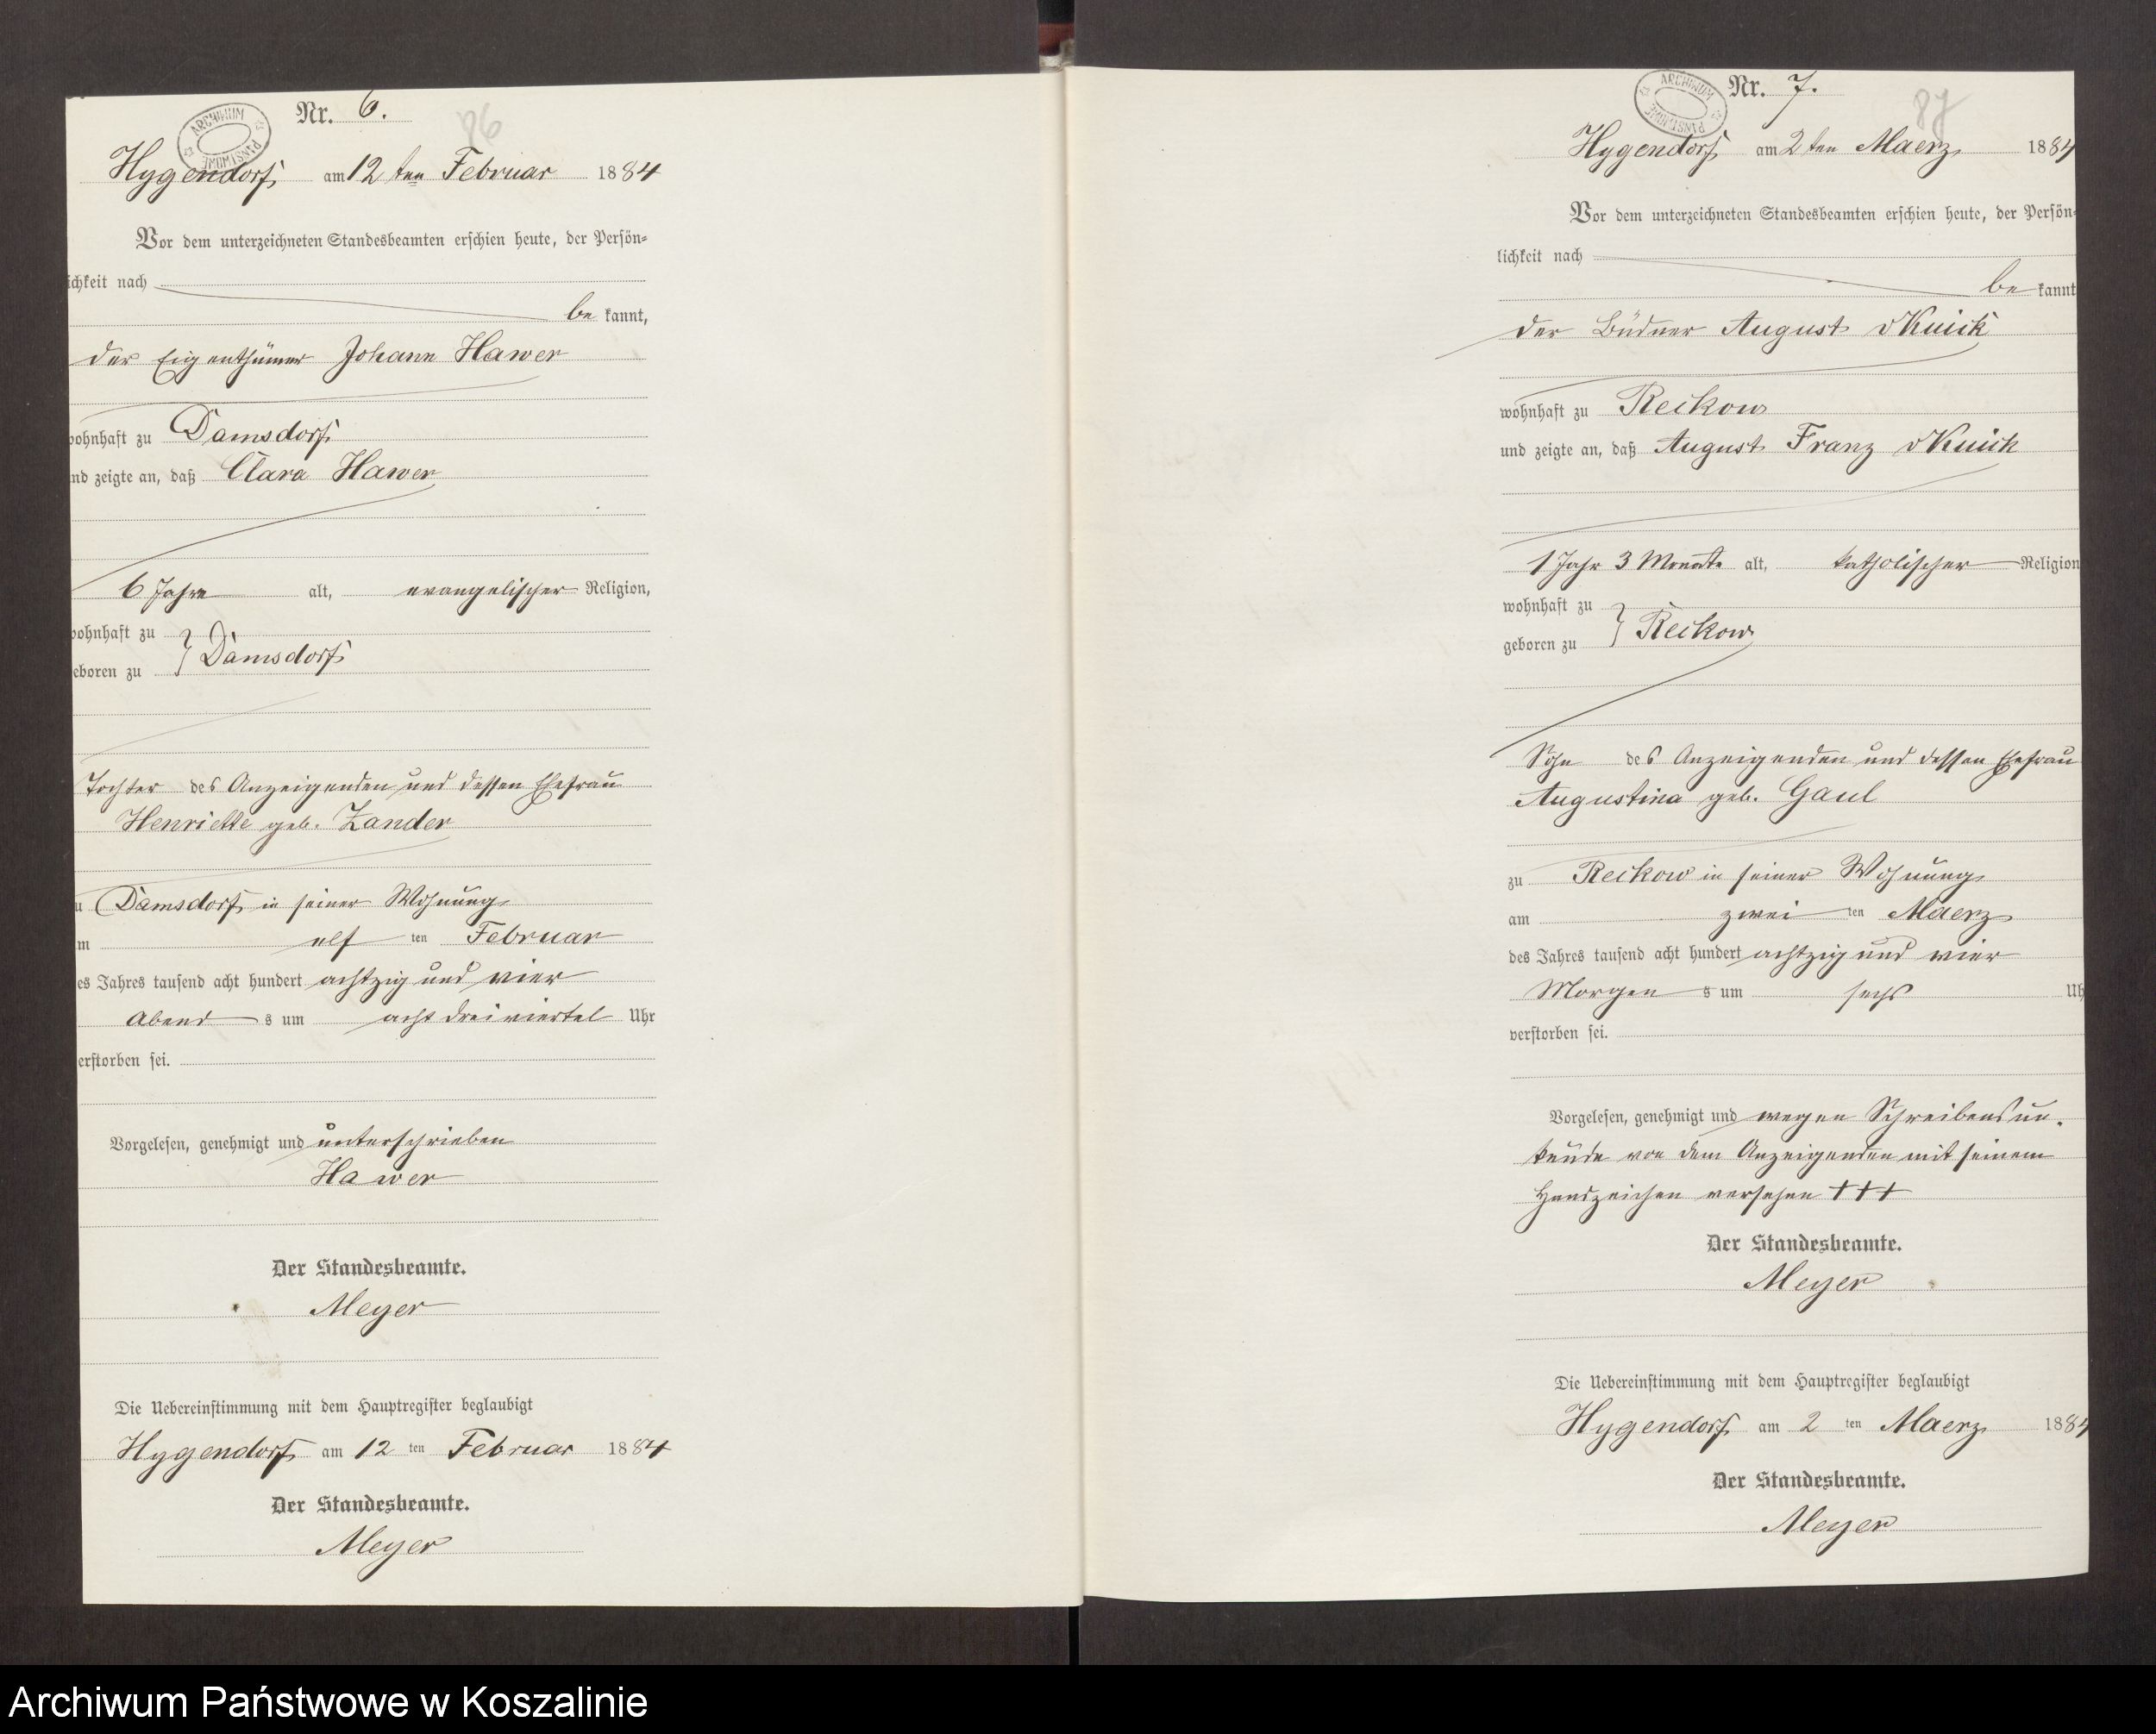 Nr. 6.
86
ARCHIWUM PAŃSTWOWE
Hygendorf am 12 ten Februar 1884
Vor dem unterzeichneten Standesbeamten erschien heute, der Persön-
ichkeit nach
be kannt,
der Eigenthümer Johann Hawer
wohnhaft zu Damsdorf
nd zeigte an, daß Clara Hawer
6 Jahre alt, evangelischer Religion,
wohnhaft zu
eboren zu } Damsdorf
Tochter des Anzeigenden und dessen Ehefrau
Henriette geb. Zander
u Damsdorf in seiner Wohnung
m elf ten Februar
es Jahres tausend acht hundert achtzig und vier
Abend s um acht dreiviertel Uhr
erstorben sei.
Vorgelesen, genehmigt und unterschrieben
Hawer
Der Standesbeamte.
Meyer
Die Uebereinstimmung mit dem Hauptregister beglaubigt
Hygendorf am 12 ten Februar 1884
Der Standesbeamte.
Meyer
Nr. 7.
87
ARCHIWUM PAŃSTWOWE
Hygendorf am 2 ten Maerz 1884
Vor dem unterzeichneten Standesbeamten erschien heute, der Persön-
lichkeit nach
be kannt
der Büdner August
wohnhaft zu Reckow
und zeigte an, daß August Franz
1 Jahr 3 Monate alt, katholischer Religion
wohnhaft zu
geboren zu } Reckow
Sohn des Anzeigenden und dessen Ehefrau
Augustina geb. Gaul
zu Reckow in seiner Wohnung
am zwei ten Maerz
des Jahres tausend acht hundert achtzig und vier
Morgen s um sechs Uh
verstorben sei.
Vorgelesen, genehmigt und wegen Schreibensun-
kunde von dem Anzeigenden mit seinem
Handzeichen versehen +++
Der Standesbeamte.
Meyer
Die Uebereinstimmung mit dem Hauptregister beglaubigt
Hygendorf am 2 ten Maerz 1884
Der Standesbeamte.
Meyer
Archiwum Państwowe w Koszalinie